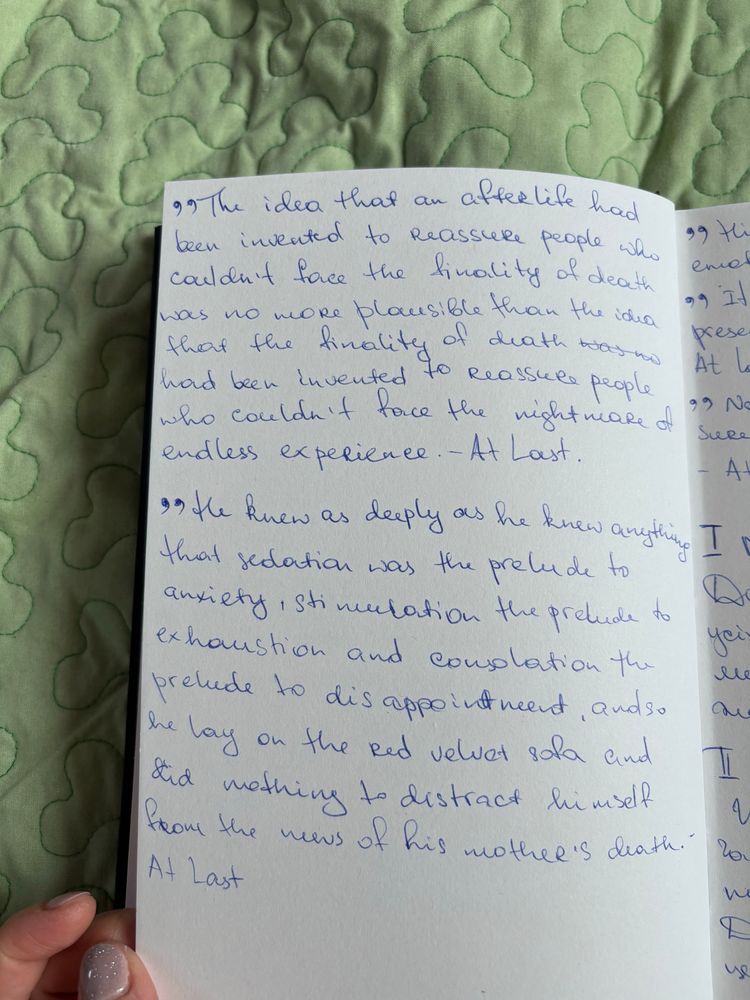 ,,The idea that an afterlife had
been invented to reassure people who
couldn't face the finality of death
was no more plausible than the idea
that the finality of death was no
had been invented to reassure people
who couldn't face the nightmare of
endless experience. - At Last.
,,He knew as deeply as he knew anything
that sedation was the prelude to
anxiety, stimulation the prelude to
exhaustion and consolation the
prelude to disappointment, and so
he lay on the red velvet sofa and
did nothing to distract himself
from the news of his mother's death. -
At Last
,,It
At
,,No
- At
I
II